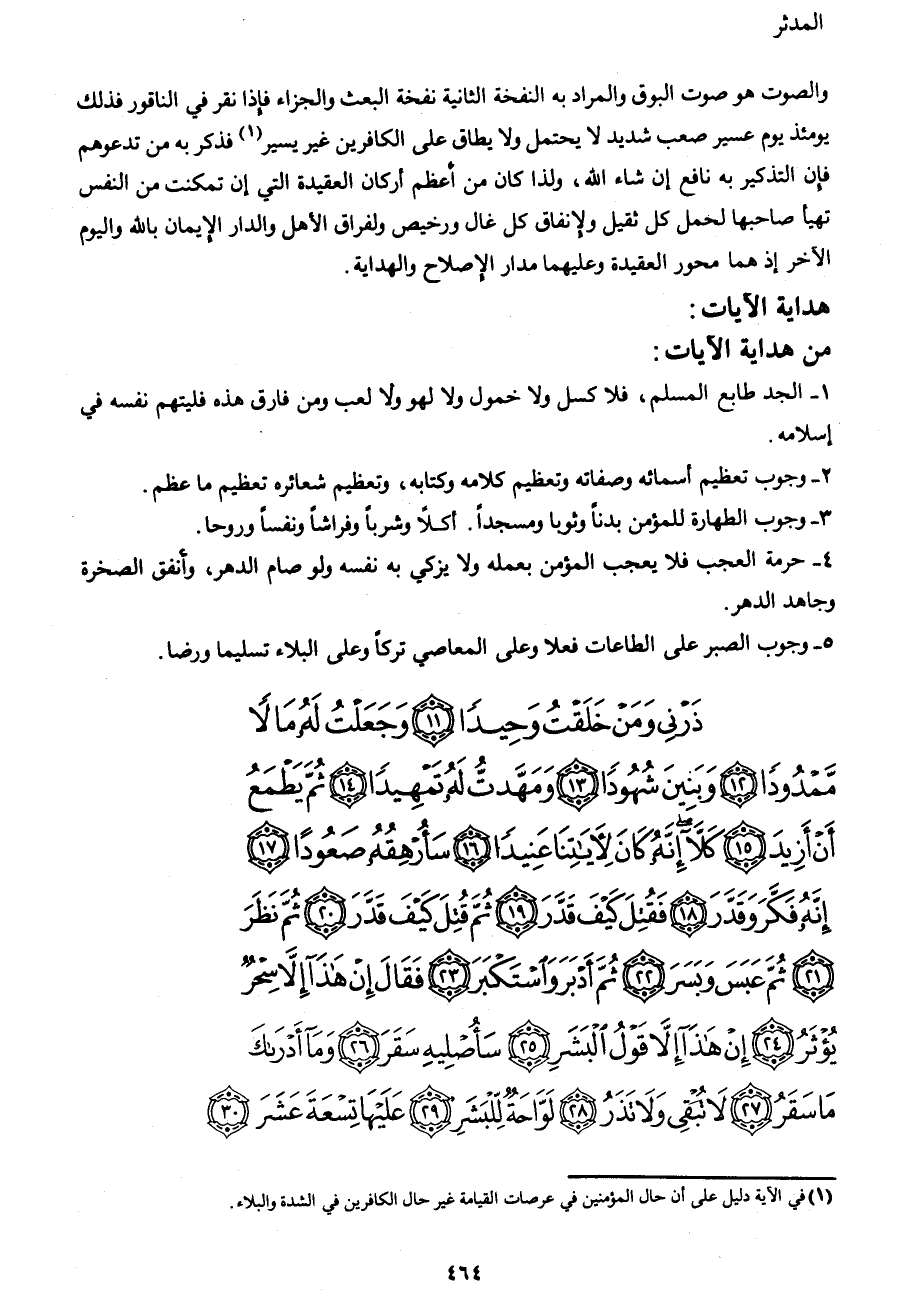 المدثر
والصوت هو صوت البوق والمراد به النفخة الثانية نفخة البعث والجزاء فإذا نقر في الناقور فذلك
يومئذ يوم عسير صعب شديد لا يحتمل ولا يطاق على الكافرين غير يسير(١) فذكر به من تدعوهم
فإن التذكير به نافع إن شاء الله، ولذا كان من أعظم أركان العقيدة التي إن تمكنت من النفس
تهيأ صاحبها لحمل كل ثقيل ولإنفاق كل غال ورخيص ولفراق الأهل والدار الإيمان بالله واليوم
الآخر إذ هما محور العقيدة وعليهما مدار الإصلاح والهداية.
هداية الآيات:
من هداية الآيات:
١ـ الجد طابع المسلم، فلا كسل ولا خمول ولا لهو ولا لعب ومن فارق هذه فليتهم نفسه في
إسلامه.
٢ـ وجوب تعظيم أسمائه وصفاته وتعظيم كلامه وكتابه، وتعظيم شعائره تعظيم ما عظم.
٣ـ وجوب الطهارة للمؤمن بدناً وثوبا ومسجداً. أكلاً وشرباً وفراشاً ونفساً وروحا.
٤ـ حرمة العجب فلا يعجب المؤمن بعمله ولا يزكي به نفسه ولو صام الدهر، وأنفق الصخرة
وجاهد الدهر.
٥ـ وجوب الصبر على الطاعات فعلا وعلى المعاصي تركاً وعلى البلاء تسليما ورضا.
ذَرْنِي وَمَنْ خَلَقْتُ وَحِيدًا ﴿١١﴾ وَجَعَلْتُ لَهُۥ مَالًا
مَّمْدُودًا ﴿١٢﴾ وَبَنِينَ شُهُودًا ﴿١٣﴾ وَمَهَّدتُّ لَهُۥ تَمْهِيدًا ﴿١٤﴾ ثُمَّ يَطْمَعُ
أَنْ أَزِيدَ ﴿١٥﴾ كَلَّآ ۖ إِنَّهُۥ كَانَ لِأَيَٰتِنَا عَنِيدًا ﴿١٦﴾ سَأُرْهِقُهُۥ صَعُودًا ﴿١٧﴾
إِنَّهُۥ فَكَّرَ وَقَدَّرَ ﴿١٨﴾ فَقُتِلَ كَيْفَ قَدَّرَ ﴿١٩﴾ ثُمَّ قُتِلَ كَيْفَ قَدَّرَ ﴿٢٠﴾ ثُمَّ نَظَرَ
﴿٢١﴾ ثُمَّ عَبَسَ وَبَسَرَ ﴿٢٢﴾ ثُمَّ أَدْبَرَ وَٱسْتَكْبَرَ ﴿٢٣﴾ فَقَالَ إِنْ هَٰذَآ إِلَّا سِحْرٌ
يُؤْثَرُ ﴿٢٤﴾ إِنْ هَٰذَآ إِلَّا قَوْلُ ٱلْبَشَرِ ﴿٢٥﴾ سَأُصْلِيهِ سَقَرَ ﴿٢٦﴾ وَمَآ أَدْرَىٰكَ
مَا سَقَرُ ﴿٢٧﴾ لَا تُبْقِي وَلَا تَذَرُ ﴿٢٨﴾ لَوَّاحَةٌ لِّلْبَشَرِ ﴿٢٩﴾ عَلَيْهَا تِسْعَةَ عَشَرَ ﴿٣٠﴾
(١) في الآية دليل على أن حال المؤمنين في عرصات القيامة غير حال الكافرين في الشدة والبلاء.
٤٦٤